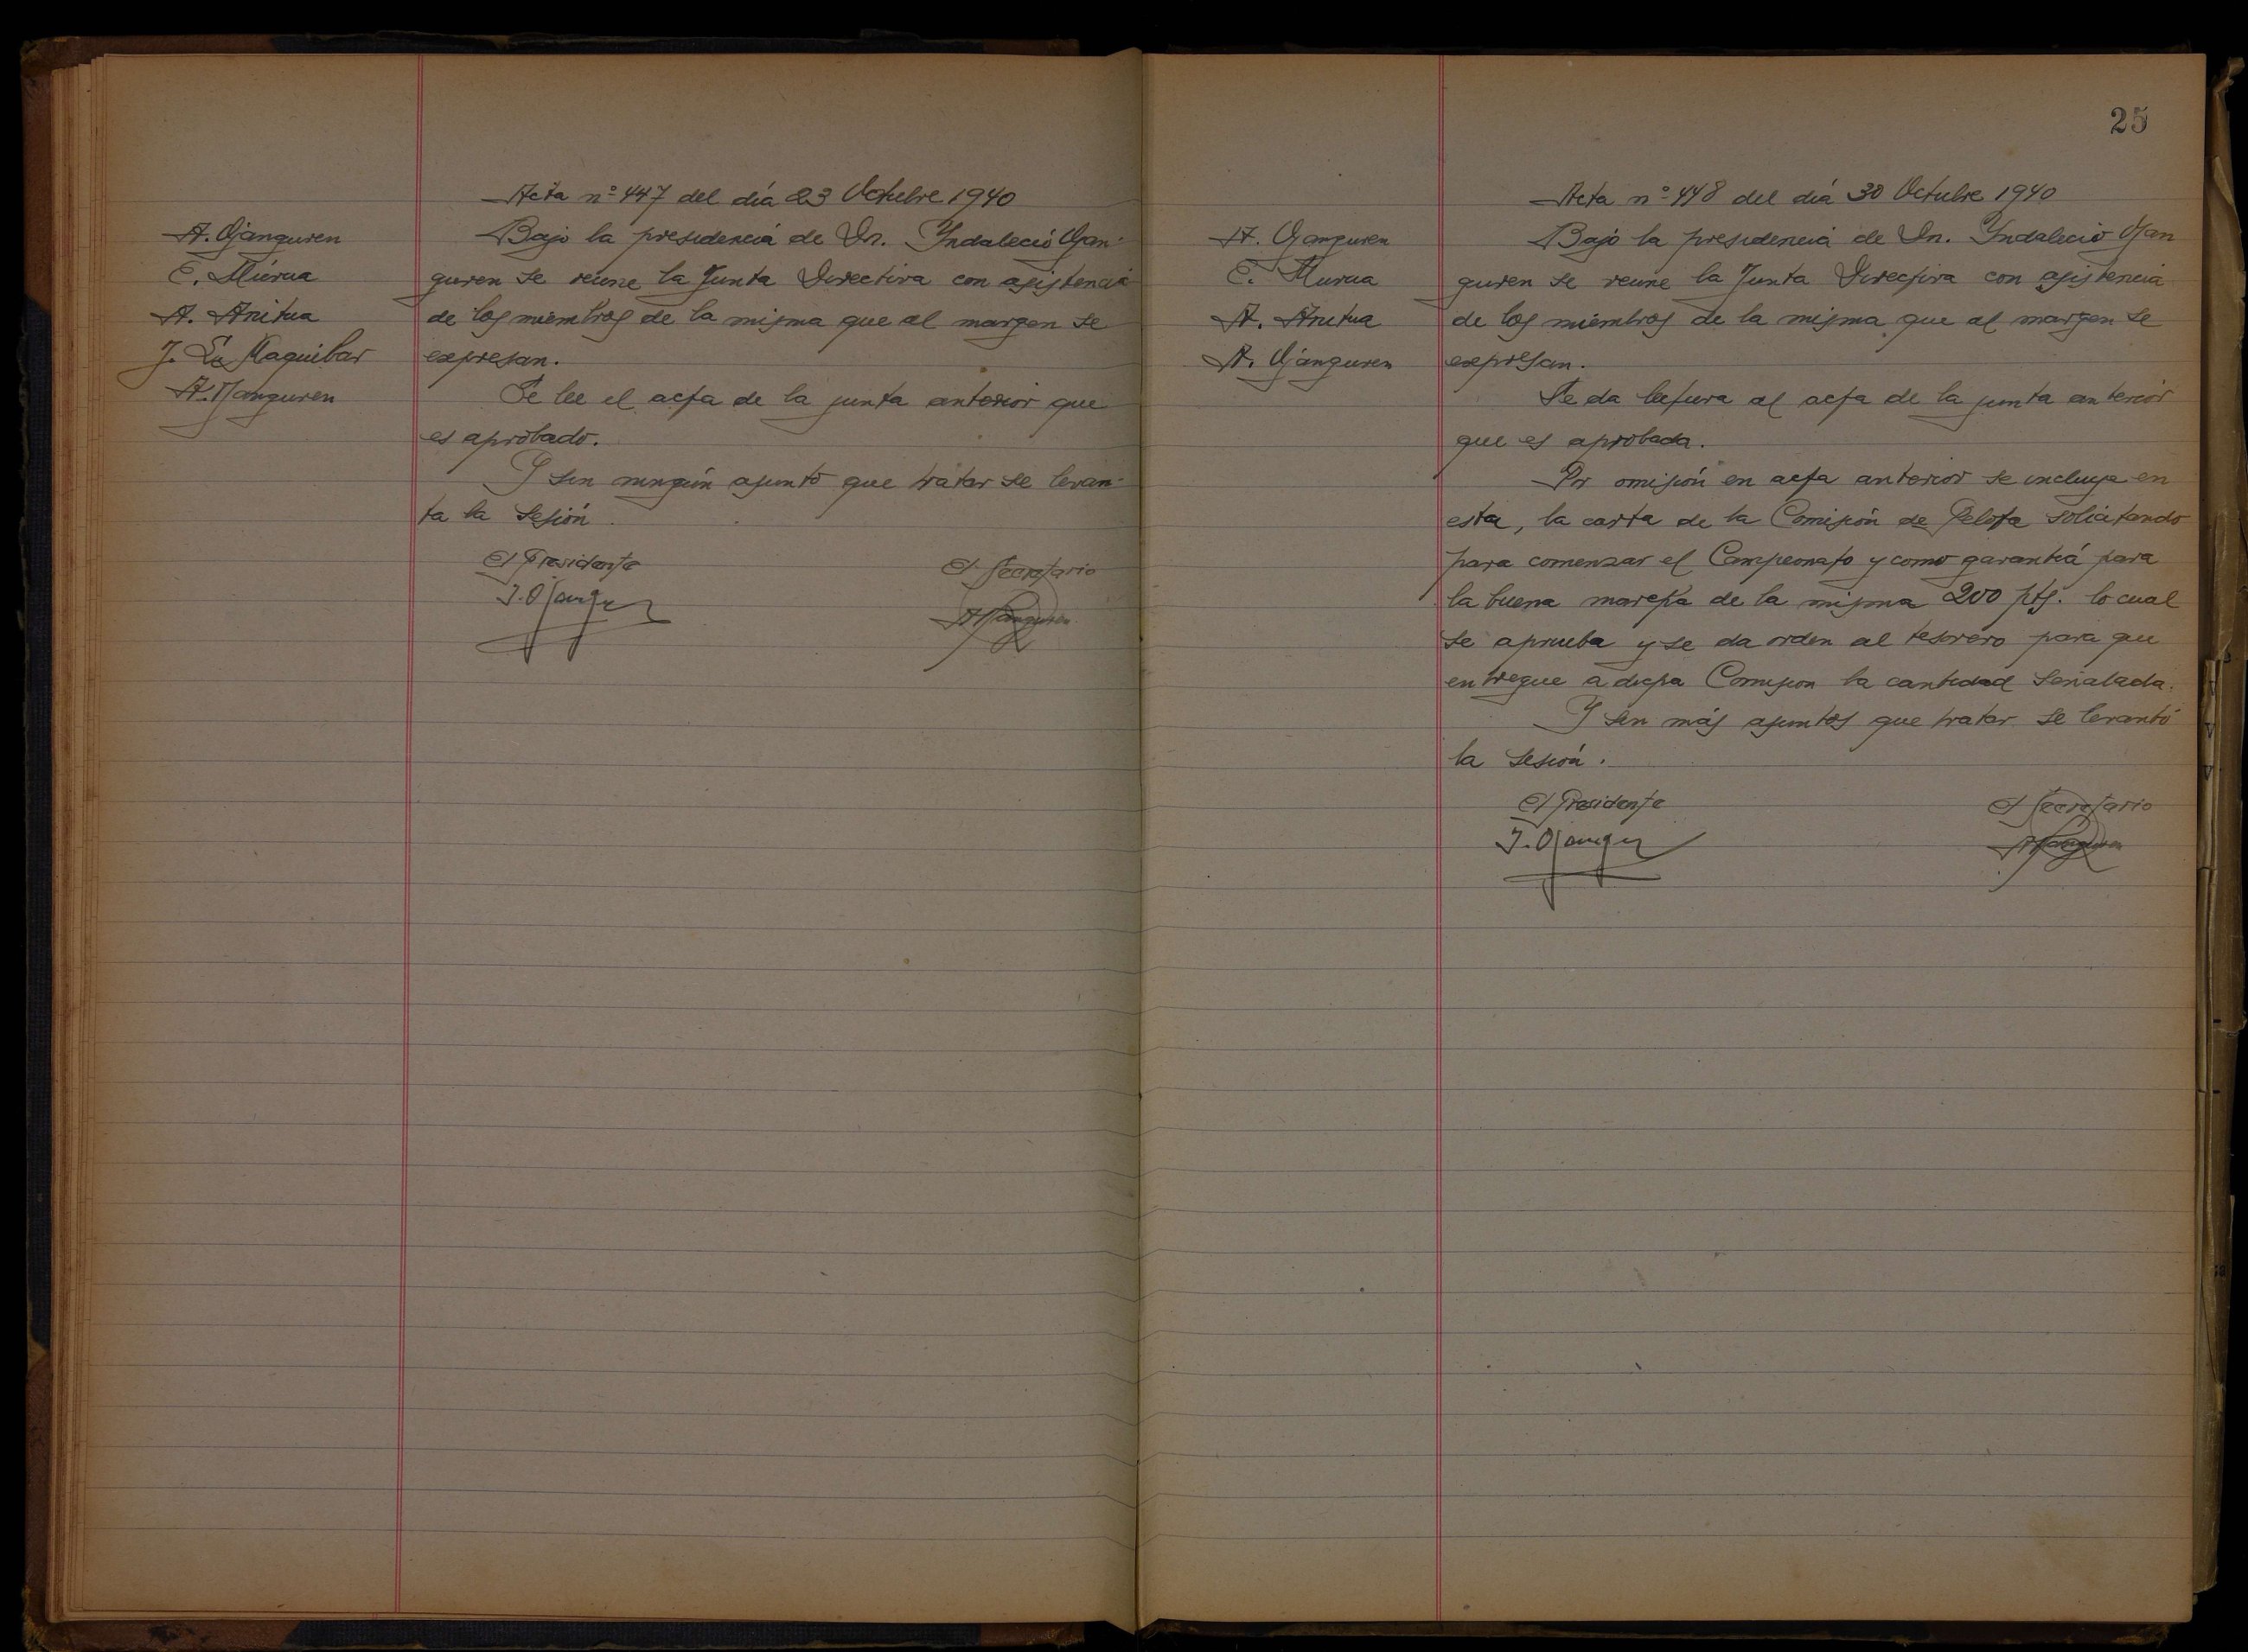 Acta nº 447 del día 23 Octubre 1940
A. Ojanguren
E. Murua
A. Anitua
J. Maguibar
A. Ojanguren
Bajo la presidencia de Dn. Yndalecio Ojan-
guren se reune la Junta Directiva con asistencia
de los miembros de la misma que al margen se
expresan.
Se lee el acta de la junta anterior que
es aprobado.
Y sin ningún asunto que tratar se levan-
ta la sesión.
El Presidente
El Secretario
I. Ojangu
A Ojanguren
25
Acta nº 448 del día 30 Octubre 1940
A. Ojanguren
E. Murua
A. Anitua
A. Ojanguren
Bajo la presidencia de Dn. Yndalecio Ojan
guren se reune la Junta Directiva con asistencia
de los miembros de la misma que al margen se
expresan.
Se da lectura al acta de la junta anterior
que es aprobada.
Por omisión en acta anterior se incluye en
esta, la carta de la Comisión de Pelota solicitando
para comenzar el Campeonato y como garantía para
la buena marcha de la misma 200 pts. lo cual
se aprueba y se da orden al tesorero para que
entregue a dicha Comision la cantidad señalada.
Y sin más asuntos que tratar se levantó
la sesión.
El Presidente
El Secretario
I. Ojangu
A Ojanguren